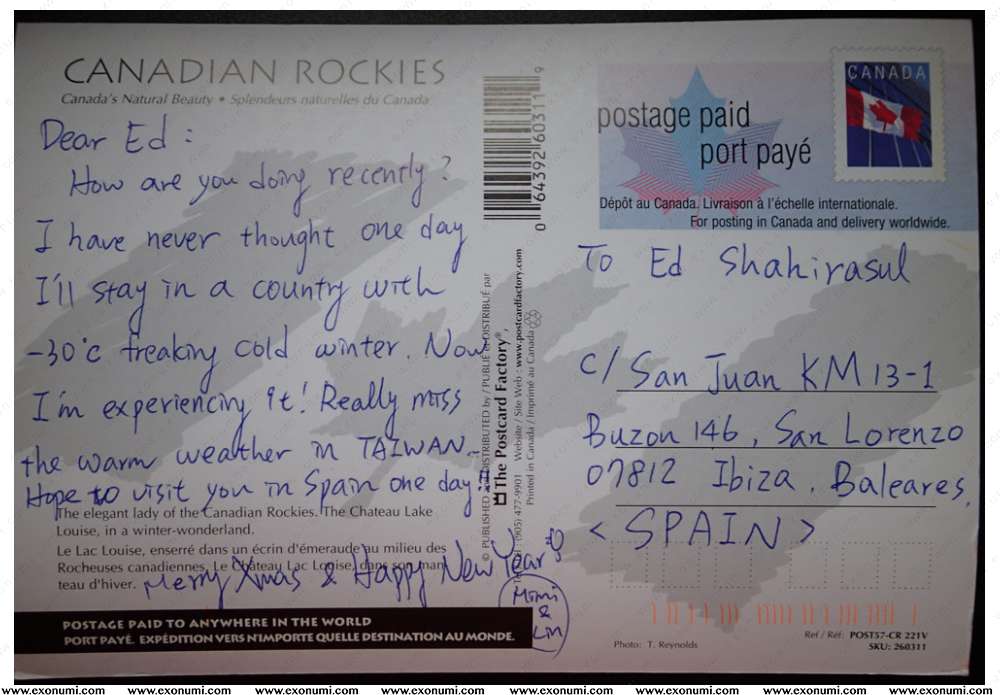 CANADIAN ROCKIES
Canada's Natural Beauty • Splendeurs naturelles du Canada
Dear Ed :
How are you doing recently?
I have never thought one day
I'll stay in a country with
-30°c freaking cold winter. Now
I'm experiencing it! Really miss
the warm weather in TAIWAN.
Hope to visit you in Spain one day!!
The elegant lady of the Canadian Rockies. The Chateau Lake
Louise, in a winter-wonderland.
Le Lac Louise, enserré dans un écrin d'émeraude au milieu des
Rocheuses canadiennes. Le Château Lac Louise, dans son man-
teau d'hiver.
Merry Xmas & Happy New Year
Mimi
&
Lin
POSTAGE PAID TO ANYWHERE IN THE WORLD
PORT PAYÉ. EXPÉDITION VERS N'IMPORTE QUELLE DESTINATION AU MONDE.
0 64392 60311 9
© PUBLISHED & DISTRIBUTED by / PUBLIÉ & DISTRIBUÉ par
The Postcard Factory®
(905) 477-9901 Website / Site Web : www.postcardfactory.com
Printed in Canada / Imprimé au Canada
postage paid
port payé
CANADA
Dépôt au Canada. Livraison à l'échelle internationale.
For posting in Canada and delivery worldwide.
To Ed Shahirasul
C/ San Juan KM 13-1
Buzon 146, San Lorenzo
07812 Ibiza, Baleares,
< SPAIN >
Photo: T. Reynolds
Ref / Réf: POST57-CR 221V
SKU: 260311
www.exonumi.com www.exonumi.com www.exonumi.com www.exonumi.com www.exonumi.com www.exonumi.com www.exonumi.com www.exonumi.com